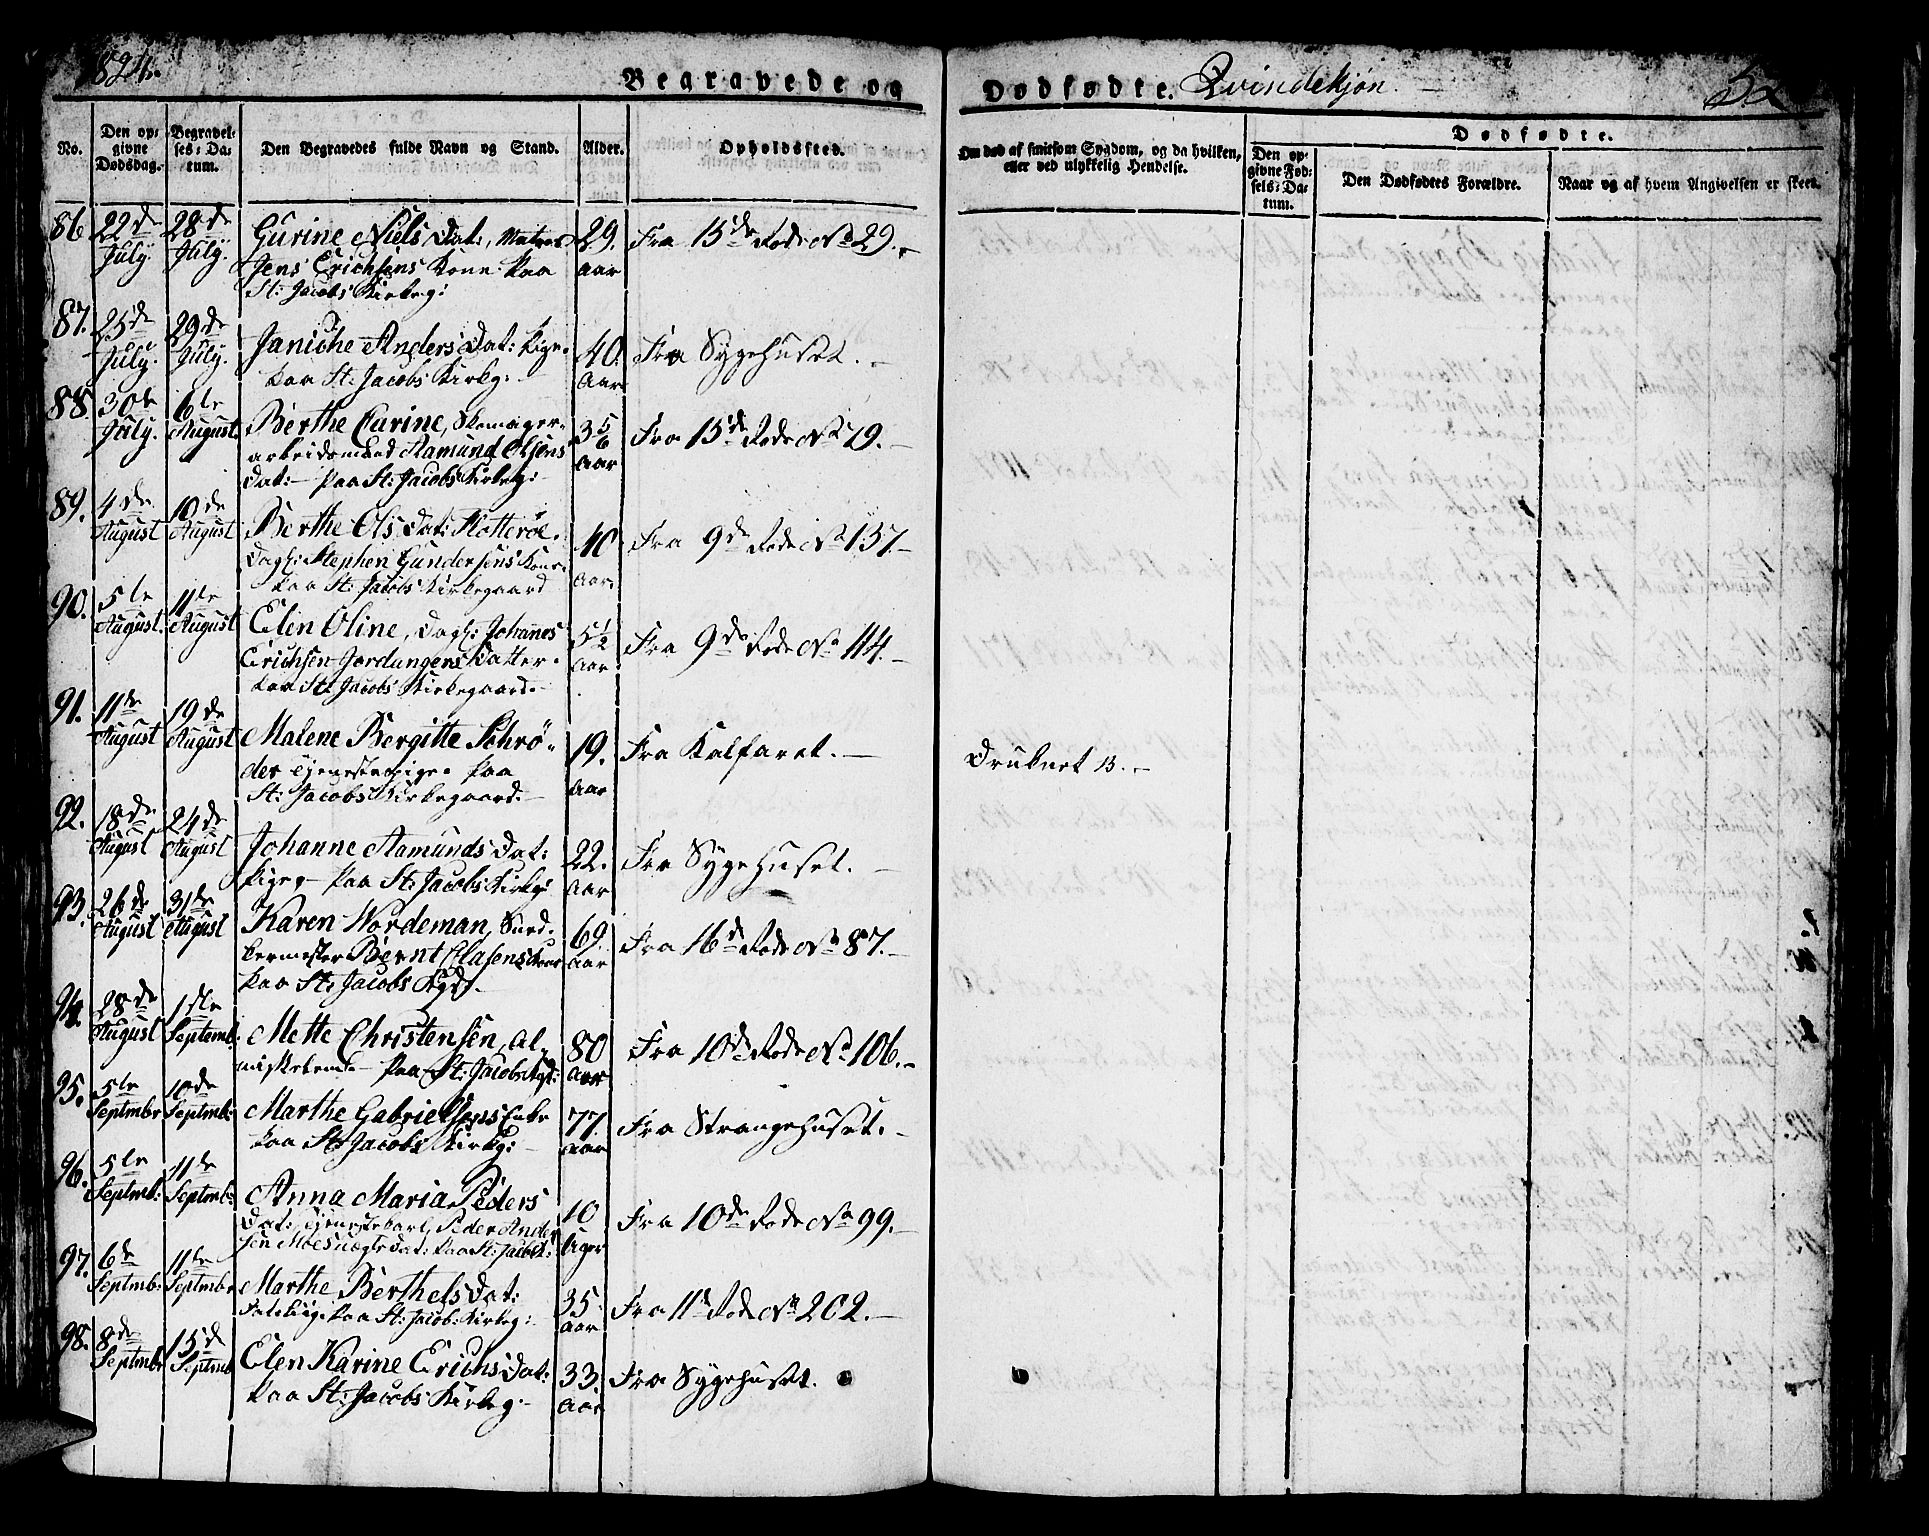 1824.
Begravede og
Dødfødte. Qvindekjøn.
52
No.
Den opgivne Dødsdag.
Begravelses-Datum.
Den Begravedes fulde Navn og Stand.
Alder.
Opholdssted.
Om død af smitsom Sygdom, og da hvilken, eller ved ulykkelig Hendelse.
Dødfødte.
Den opgivne Fødsels-Datum.
Den Dødfødtes Forældre.
Naar og af hvem Angivelsen er skeet.
86 22de July. 28de July. Gurine Niels Dat:, Matros
Jens Erichsens Kone. paa
St: Jacobs Kirkeg:
29. aar
Fra 15de Rode No 29.
87. 25de July. 29de July. Janiche Anders Dat: Pige.
paa St: Jacobs Kirkg:
40. aar
Fra Sygehuset.
88. 30te July. 6te August. Berthe Carine, Skomager-
arbeidsmand Aamund Olsens
Dat: paa St: Jacobs Kirkeg:
3 5/6 aar
Fra 15de Rode No 79.
89. 4de August 10de August Berthe Ols Dat: Kotterøe.
Dagl: Stephen Gundersens Kone.
paa St: Jacobs Kirkegaard
40 aar.
Fra 9de Rode No 137.
90. 5te August. 11te August Elen Oline, Dagl: Johannes
Erichsen Jordungens Datter.
paa St: Jacobs Kirkegaard.
5 1/2 aar
Fra 9de Rode No 114.
91. 11te August 19de August Malene Bergitte Schrø-
der tjenestepige. paa
St: Jacobs Kirkegaard.
19. aar
Fra Kalfaret.
Druknet 13.
92. 18de August 24de August Johanne Aamunds Dat:
Pige, paa St: Jacobs Kirkg:
22. aar
Fra Sygehuset.
93. 26de August 31de August Karen Nordeman,
Bernt Clasens Kone
paa St: Jacobs Kgd.
69. aar
Fra 16de Rode No 87.
94. 28de August 1ste Septemb: Mette Christensen, al-
misselem. paa St: Jacobs Kgd:
80 aar
Fra 10de Rode No 106.
95. 5te Septmbr 10de Septmb: Marthe Gabrielsens Enke
paa St: Jacobs Kirkg:
77. aar
Fra Strangehuset.
96. 5te Septmb: 11te Septmb: Anna Maria Peders
Dat:, Peder Ander
sen Dat: paa St: Jacobs:
10 Uger
Fra 10de Rode No 99.
97. 6te Septmb: 11te Septmbr Marthe Berthels Dat:
paa St: Jacob: Kirkeg:
35 aar
Fra 11te Rode No 202.
98. 8de Septmbr 15de Septmb Elen Karine Erichs Dat:
paa St: Jacobs Kirkeg:
33. aar
Fra Sygehuset.